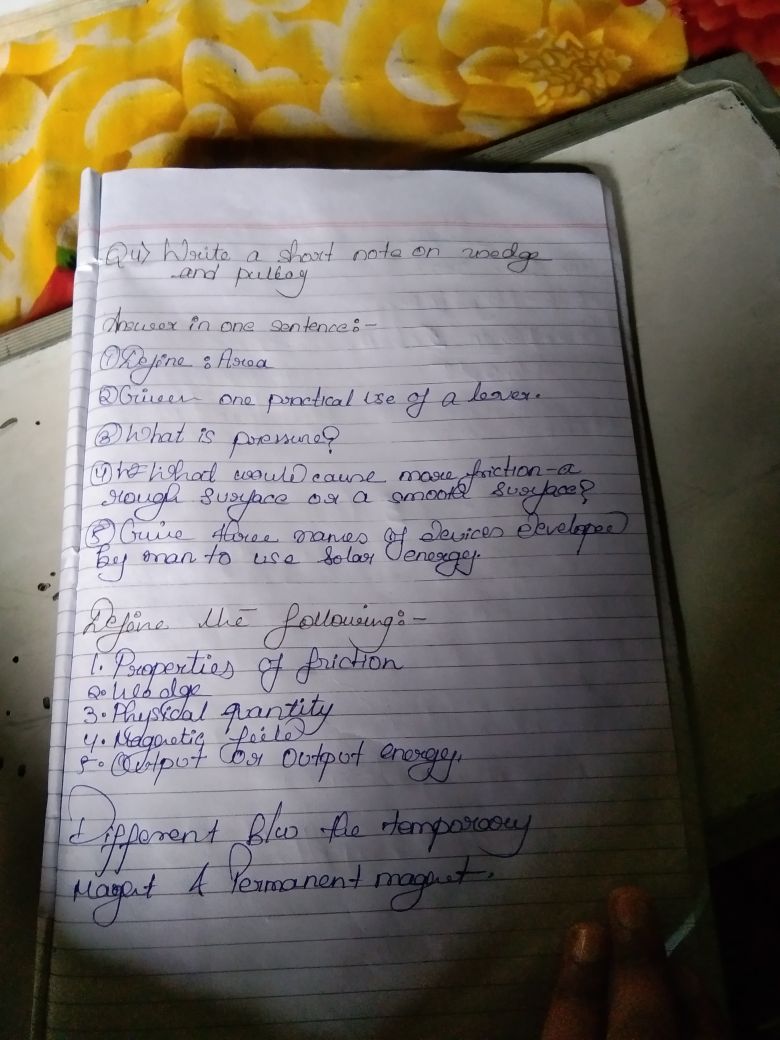 Q4) Write a short note on wedge
and pulley
Answer in one sentence:-
① Define : Area
② Given one practical use of a lever.
③ What is pressure?
④ What would cause more friction - a
rough surface or a smooth surface?
⑤ Give three names of devices developed
by man to use solar energy.
Define the following:-
1. Properties of friction
2. Wedge
3. Physical quantity
4. Magnetic field
5. Output or output energy.
Different B/w the temporary
Maget & Permanent magnet.